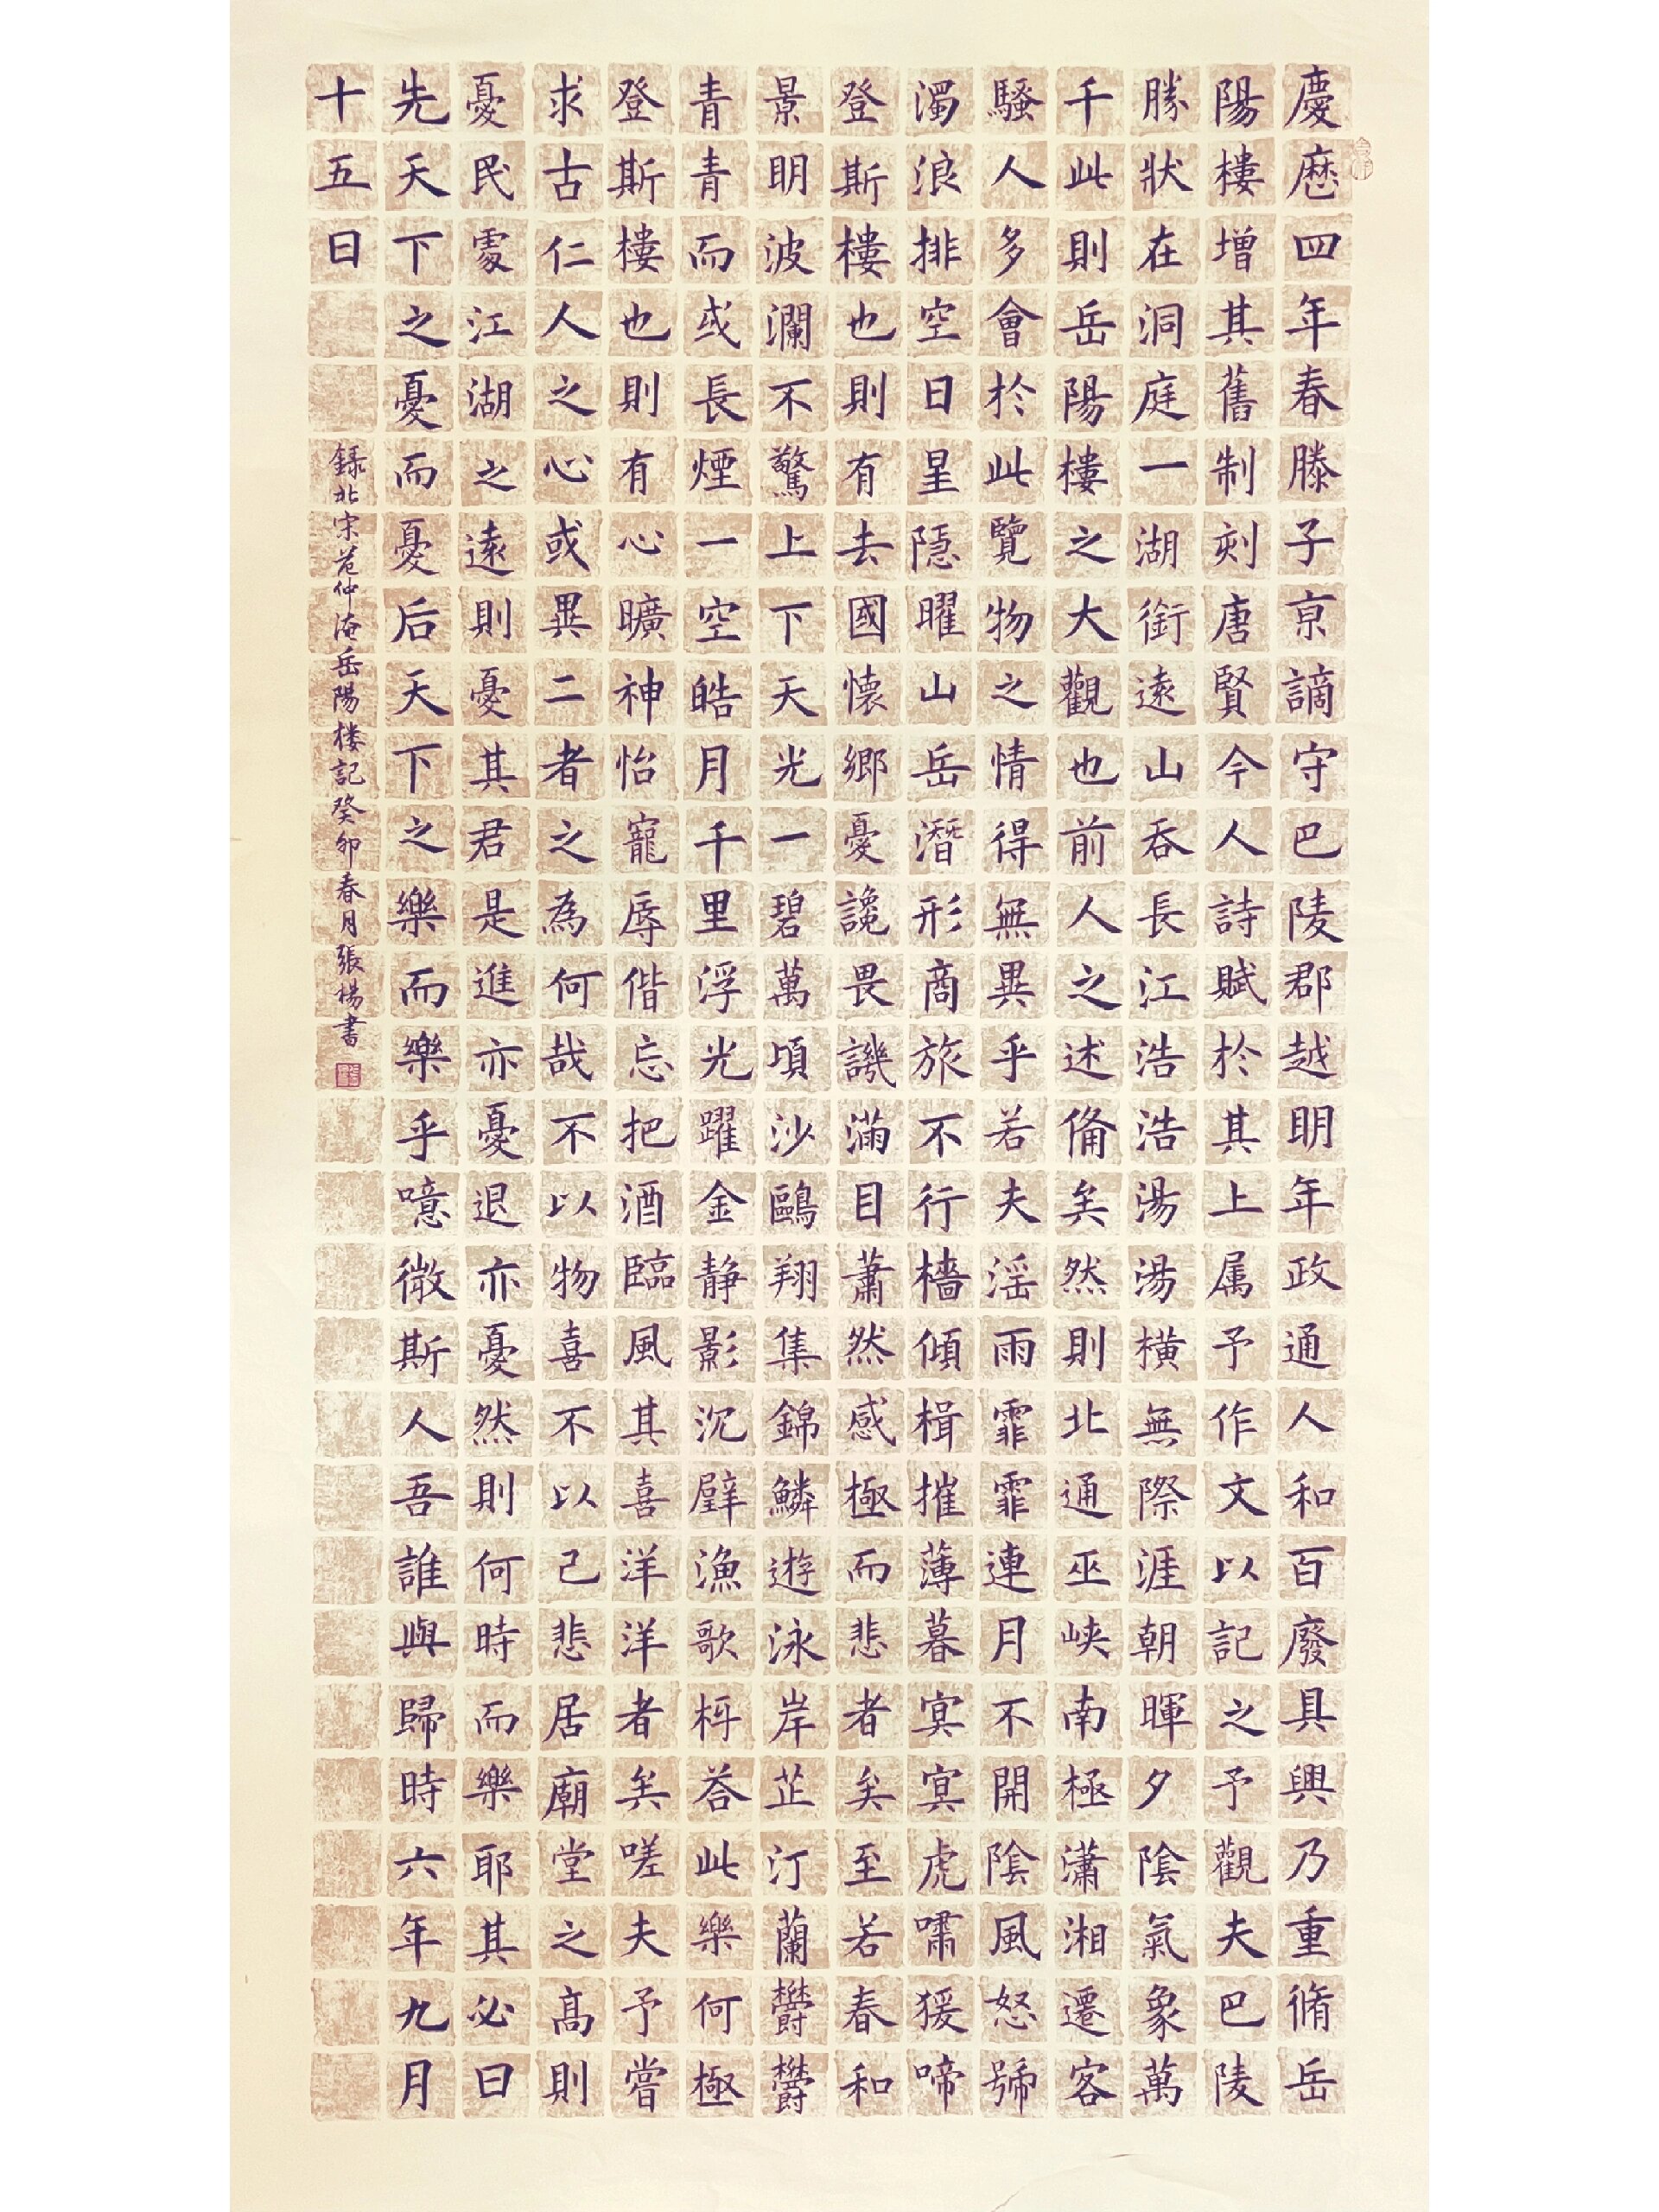 慶歷四年春滕子京謫守巴陵郡越明年政通人和百廢具興乃重脩岳
陽樓增其舊制刻唐賢今人詩賦於其上属予作文以記之予觀夫巴陵
勝狀在洞庭一湖銜遠山吞長江浩浩湯湯橫無際涯朝暉夕陰氣象萬
千此則岳陽樓之大觀也前人之述備矣然則北通巫峽南極瀟湘遷客
騷人多會於此覽物之情得無異乎若夫淫雨霏霏連月不開陰風怒號
濁浪排空日星隱曜山岳潛形商旅不行檣傾楫摧薄暮冥冥虎嘯猨啼
登斯樓也則有去國懷鄉憂讒畏譏滿目蕭然感極而悲者矣至若春和
景明波瀾不驚上下天光一碧萬頃沙鷗翔集錦鱗遊泳岸芷汀蘭欝欝
青青而或長煙一空皓月千里浮光躍金静影沉璧漁歌互答此樂何極
登斯樓也則有心曠神怡寵辱偕忘把酒臨風其喜洋洋者矣嗟夫予嘗
求古仁人之心或異二者之為何哉不以物喜不以己悲居廟堂之髙則
憂民處江湖之遠則憂其君是進亦憂退亦憂然則何時而樂耶其必曰
先天下之憂而憂后天下之樂而樂乎噫微斯人吾誰與歸時六年九月
十五日
錄北宋范仲淹岳陽楼記癸卯春月張楊書